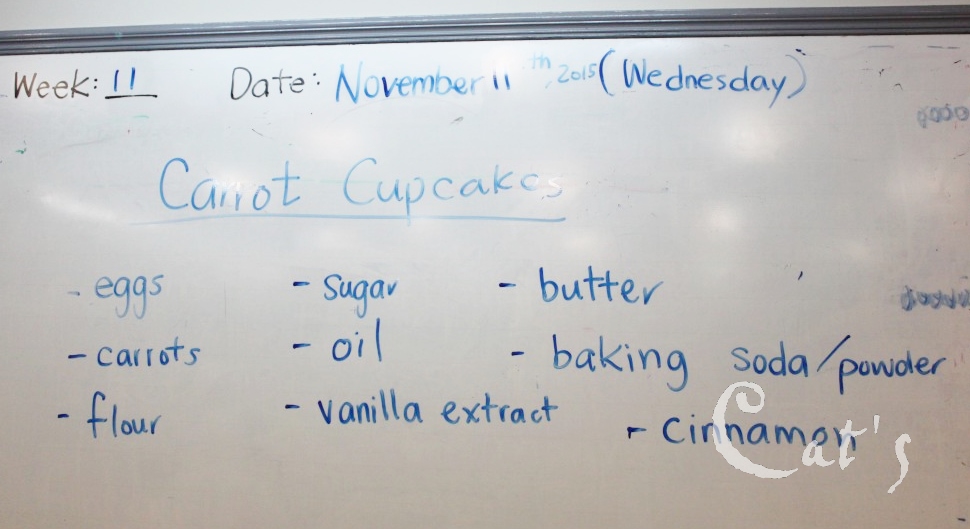 Week: 11 Date: November 11th, 2015 (Wednesday)
Carrot Cupcakes
- eggs - sugar - butter
- carrots - oil - baking soda/powder
- flour - vanilla extract - cinnamon
Cat's